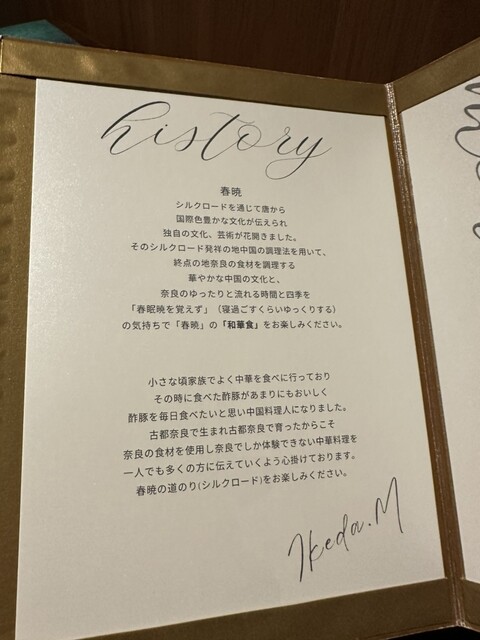 history
春暁
シルクロードを通じて唐から
国際色豊かな文化が伝えられ
独自の文化、芸術が花開きました。
そのシルクロード発祥の地中国の調理法を用いて、
終点の地奈良の食材を調理する
華やかな中国の文化と、
奈良のゆったりと流れる時間と四季を
「春眠暁を覚えず」（寝過ごすくらいゆっくりする）
の気持ちで「春暁」の「和華食」をお楽しみください。
小さな頃家族でよく中華を食べに行っており
その時に食べた酢豚があまりにもおいしく
酢豚を毎日食べたいと思い中国料理人になりました。
古都奈良で生まれ古都奈良で育ったからこそ
奈良の食材を使用し奈良でしか体験できない中華料理を
一人でも多くの方に伝えていくよう心掛けております。
春暁の道のり(シルクロード)をお楽しみください。
Ikeda.M